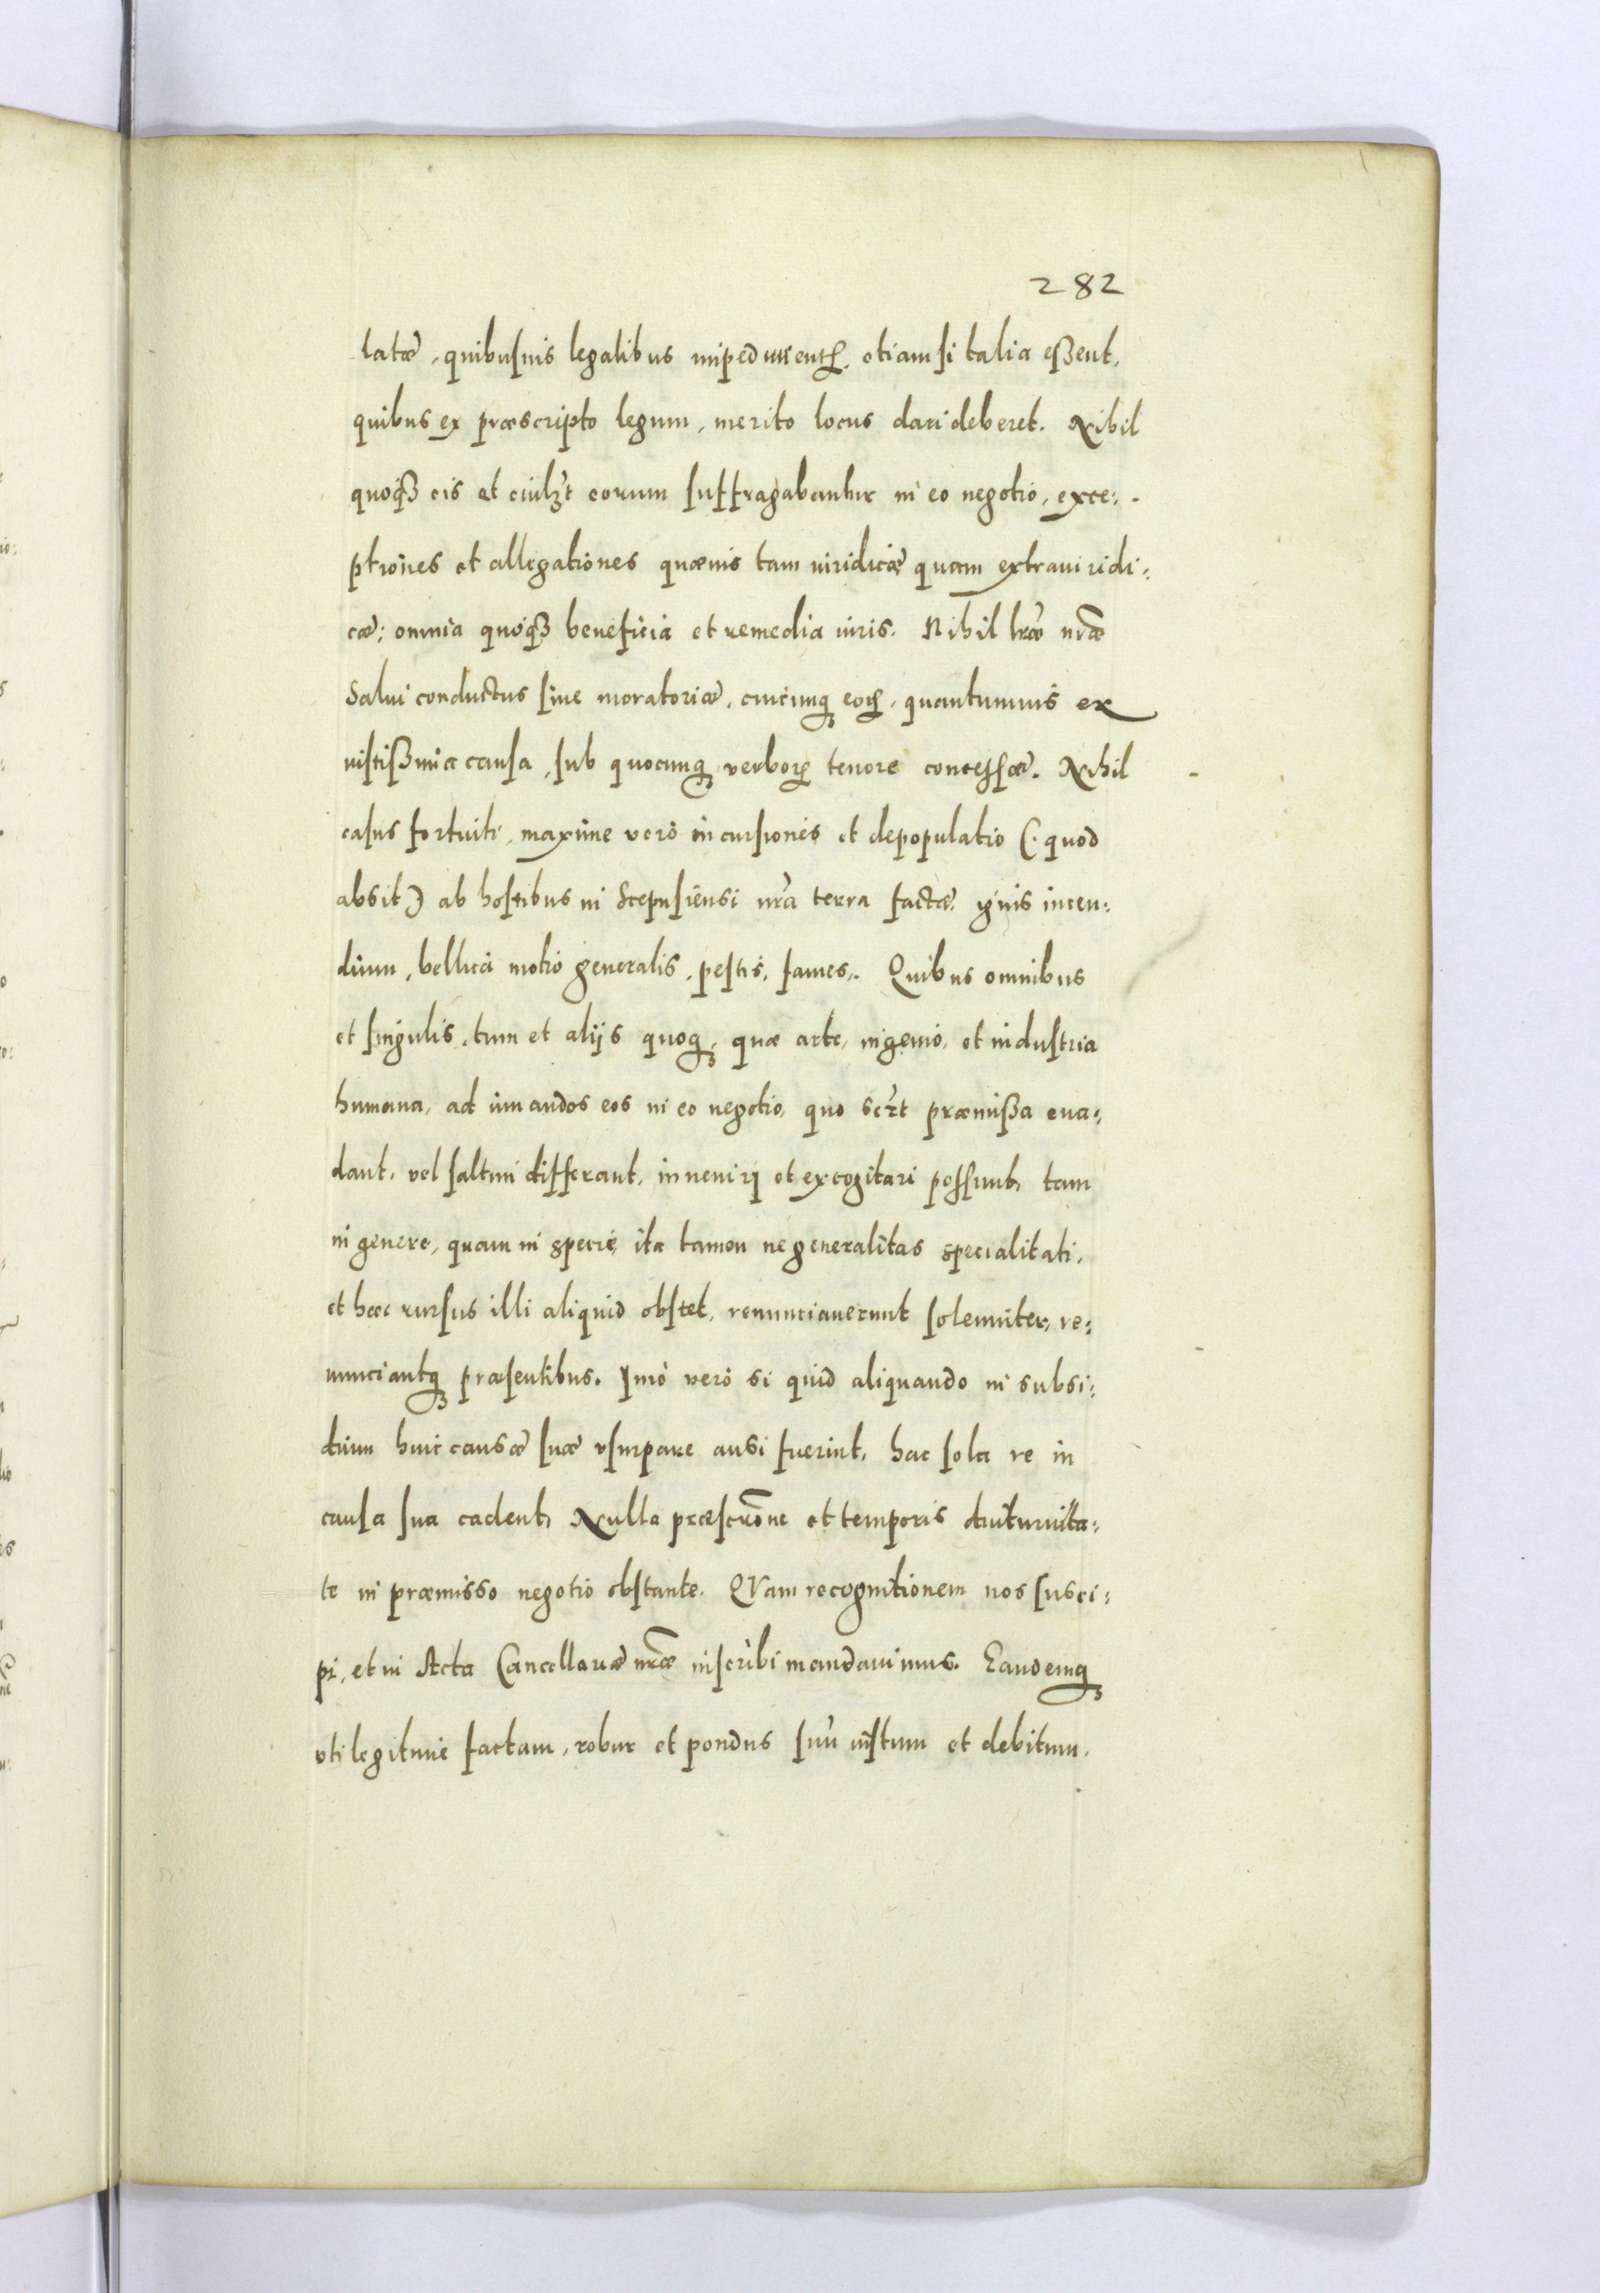 282
latæ, quibusuis legalibus impedimentꝭ. etiamsi talia eßent,
quibus ex præscripto legum, merito locus dari deberet. Nihil
quoqȝ eis et cuilꝫt eorum suffragabuntur in eo negotio, exce:
ptiones et allegationes quæuis tam iuridicæ quam extraiuridi:
cæ: omnia quoqȝ beneficia et remedia iuris. Nihil lr̃æ nr̃æ
Salui conductus siue moratoriæ, cuicunqȝ eorꝭ, quantumuis ex
iustißima causa, sub quocunqȝ verborꝭ tenore concessæ. Nihil
casus fortuiti, maxime verò incursiones et depopulatio (: quod
absit) ab hostibus in Scepusiensi nr̃a terra factæ. ignis incen:
dium, bellica motio generalis, pestis, fames. Quibus omnibus
et singulis, tum et alijs quoqȝ, quæ arte, ingenio, et industria
humana, ad iuuandos eos in eo negotio, quo scꝫt præmißa eua:
dant, vel saltim differant, inueniri et excogitari possunt, tam
in genere, quam in specie, ita tamen ne generalitas specialitati,
et hæc rursus illi aliquid obstet, renunciauerunt solemniter, re:
nunciantqȝ præsentibus. Imò verò si quid aliquando in subsi:
dium huic causæ suæ vsurpare ausi fuerint, hac sola re in
causa sua cadent, Nulla præscr̃one et temporis diuturnita:
te in præmisso negotio obstante. QVam recognitionem nos susci:
pi, et in Acta Cancellariæ nr̃æ inscribi mandauimus. Eandemqȝ
vti legitime factam, robur et pondus suũ iustum et debitum,